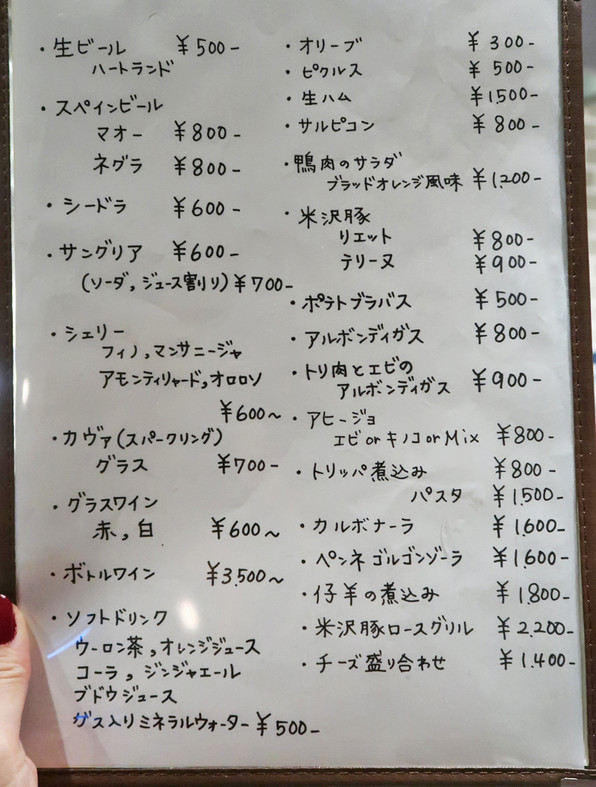 ・生ビール ¥500-
ハートランド
・スペインビール
マオー ¥800-
ネグラ ¥800-
・シードラ ¥600-
・サングリア ¥600-
(ソーダ,ジュース割り) ¥700-
・シェリー
フィノ,マンサニージャ
アモンティリャード,オロロソ
¥600~
・カヴァ(スパークリング)
グラス ¥700-
・グラスワイン
赤,白 ¥600~
・ボトルワイン ¥3,500~
・ソフトドリンク
ウーロン茶,オレンジジュース
コーラ,ジンジャエール
ブドウジュース
ガス入りミネラルウォーター ¥500-
・オリーブ ¥300-
・ピクルス ¥500-
・生ハム ¥1,500-
・サルピコン ¥800-
・鴨肉のサラダ
ブラッドオレンジ風味 ¥1,200-
・米沢豚
リエット ¥800-
テリーヌ ¥900-
・ポテトブラバス ¥500-
・アルボンディガス ¥800-
・トリ肉とエビの
アルボンディガス ¥900-
・アヒージョ
エビorキノコorMix ¥800-
・トリッパ煮込み ¥800-
パスタ ¥1,500-
・カルボナーラ ¥1,600-
・ペンネゴルゴンゾーラ ¥1,600-
・仔羊の煮込み ¥1,800-
・米沢豚ロースグリル ¥2,200-
・チーズ盛り合わせ ¥1,400-